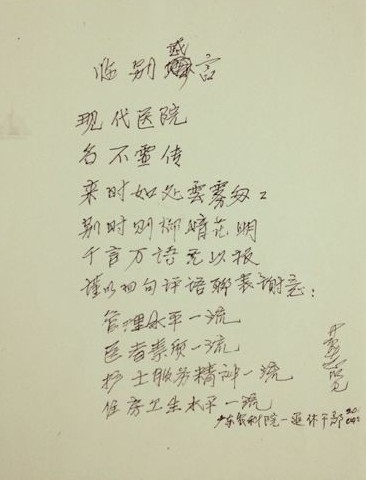 临别感言
现代医院
名不虚传
来时如处雲雾幻幻
别时则柳暗花明
千言万语无以报
谨以四句评语聊表谢意:
管理水平一流
医者素质一流
护士服务精神一流
住房卫生水平一流
广东农科院一退休干部